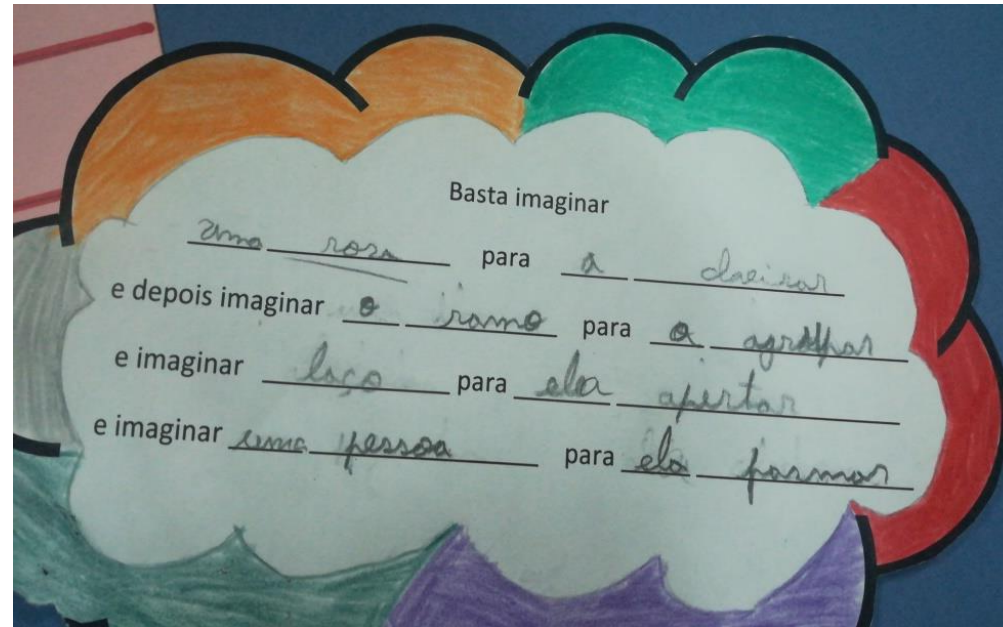 Basta imaginar
uma rosa para a cheirar
e depois imaginar o ramo para a agrafar
e imaginar laço para ela apertar
e imaginar uma pessoa para ela